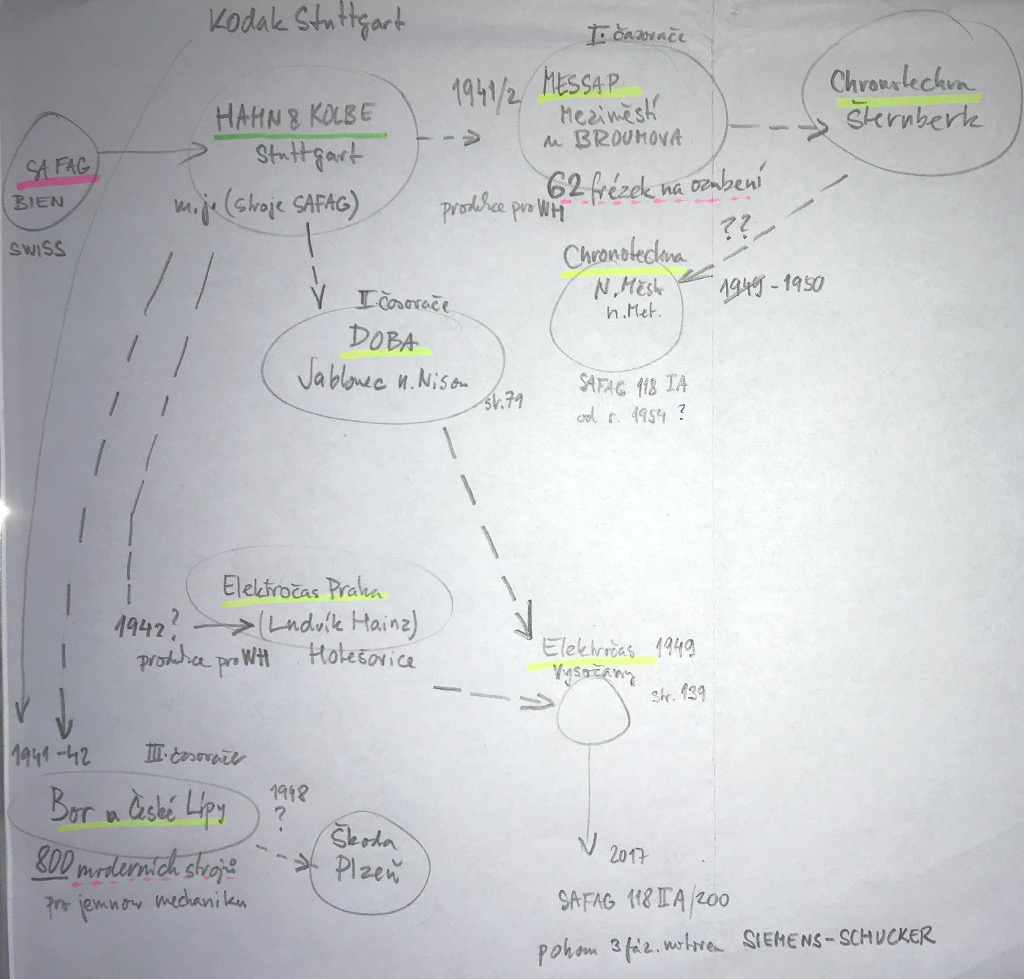 Kodak Stuttgart
I. časovače
MESSAP
Meziměstí
u BROUMOVA
1941/2
62 frézek na ozubení
produkce pro WH
Chronotechna
Šternberk
HAHN & KOLBE
Stuttgart
m.j. (stroje SAFAG)
SAFAG
BIEN
SWISS
??
Chronotechna
N. Měst
n. Met.
1949 - 1950
SAFAG 118 IA
od r. 1954 ?
II časovače
DOBA
Jablonec n. Nisou
str. 79
Elektročas Praha
(Ludvík Hainz)
Holešovice
1942?
produkce pro WH
Elektročas 1949
Vysočany
str. 139
1941-42
III. časovače
Bor u České Lípy
800 moderních strojů
pro jemnou mechaniku
1948
?
Škoda
Plzeň
2017
SAFAG 118 II A/200
pohon 3 fáz. motorem SIEMENS-SCHUCKER